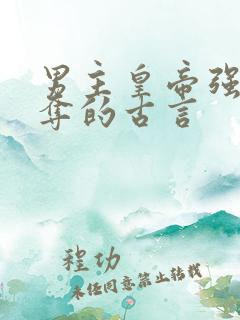 男主皇帝强
夺的古言
程功
未经同意禁止转载